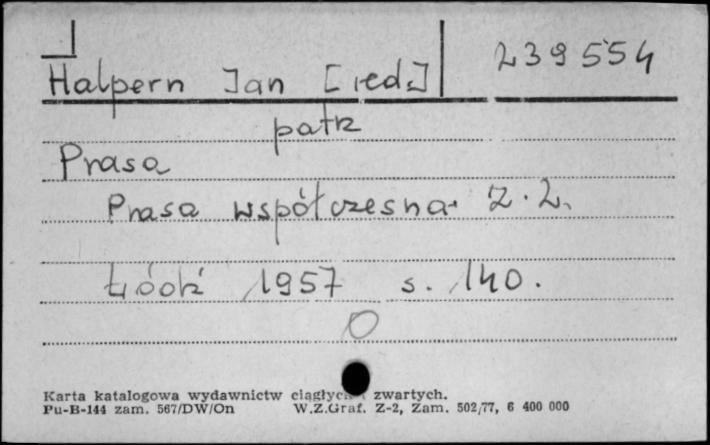 239554
Halpern Jan [red.]
patrz
Prasa
Prasa współczesna. Z. 2.
Łódź 1957 s. 140.
Karta katalogowa wydawnictw ciągłych i zwartych.
Pu-B-144 zam. 567/DW/On W.Z.Graf. Z-2, Zam. 502/77, 6 400 000